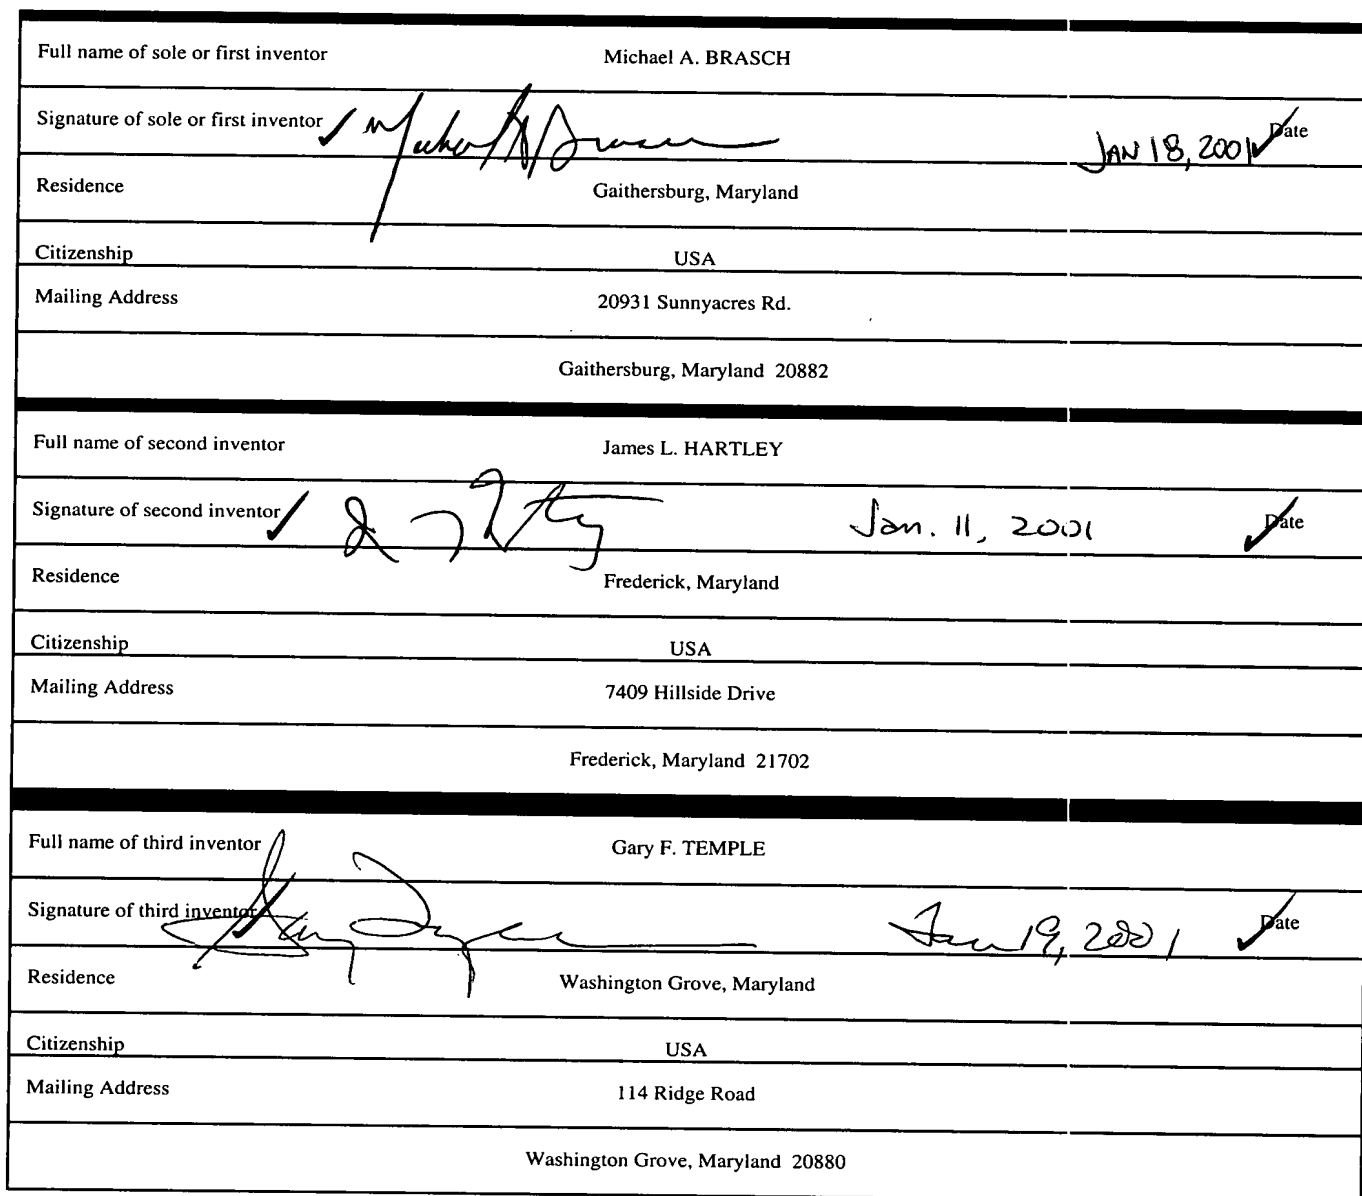 Full name of sole or first inventor Michael A. BRASCH
Signature of sole or first inventor Michael A Brasch JAN 18, 2001 Date
Residence Gaithersburg, Maryland
Citizenship USA
Mailing Address 20931 Sunnyacres Rd.
Gaithersburg, Maryland 20882
Full name of second inventor James L. HARTLEY
Signature of second inventor Jan. 11, 2001 Date
Residence Frederick, Maryland
Citizenship USA
Mailing Address 7409 Hillside Drive
Frederick, Maryland 21702
Full name of third inventor Gary F. TEMPLE
Signature of third inventor Jan 19, 2001 Date
Residence Washington Grove, Maryland
Citizenship USA
Mailing Address 114 Ridge Road
Washington Grove, Maryland 20880